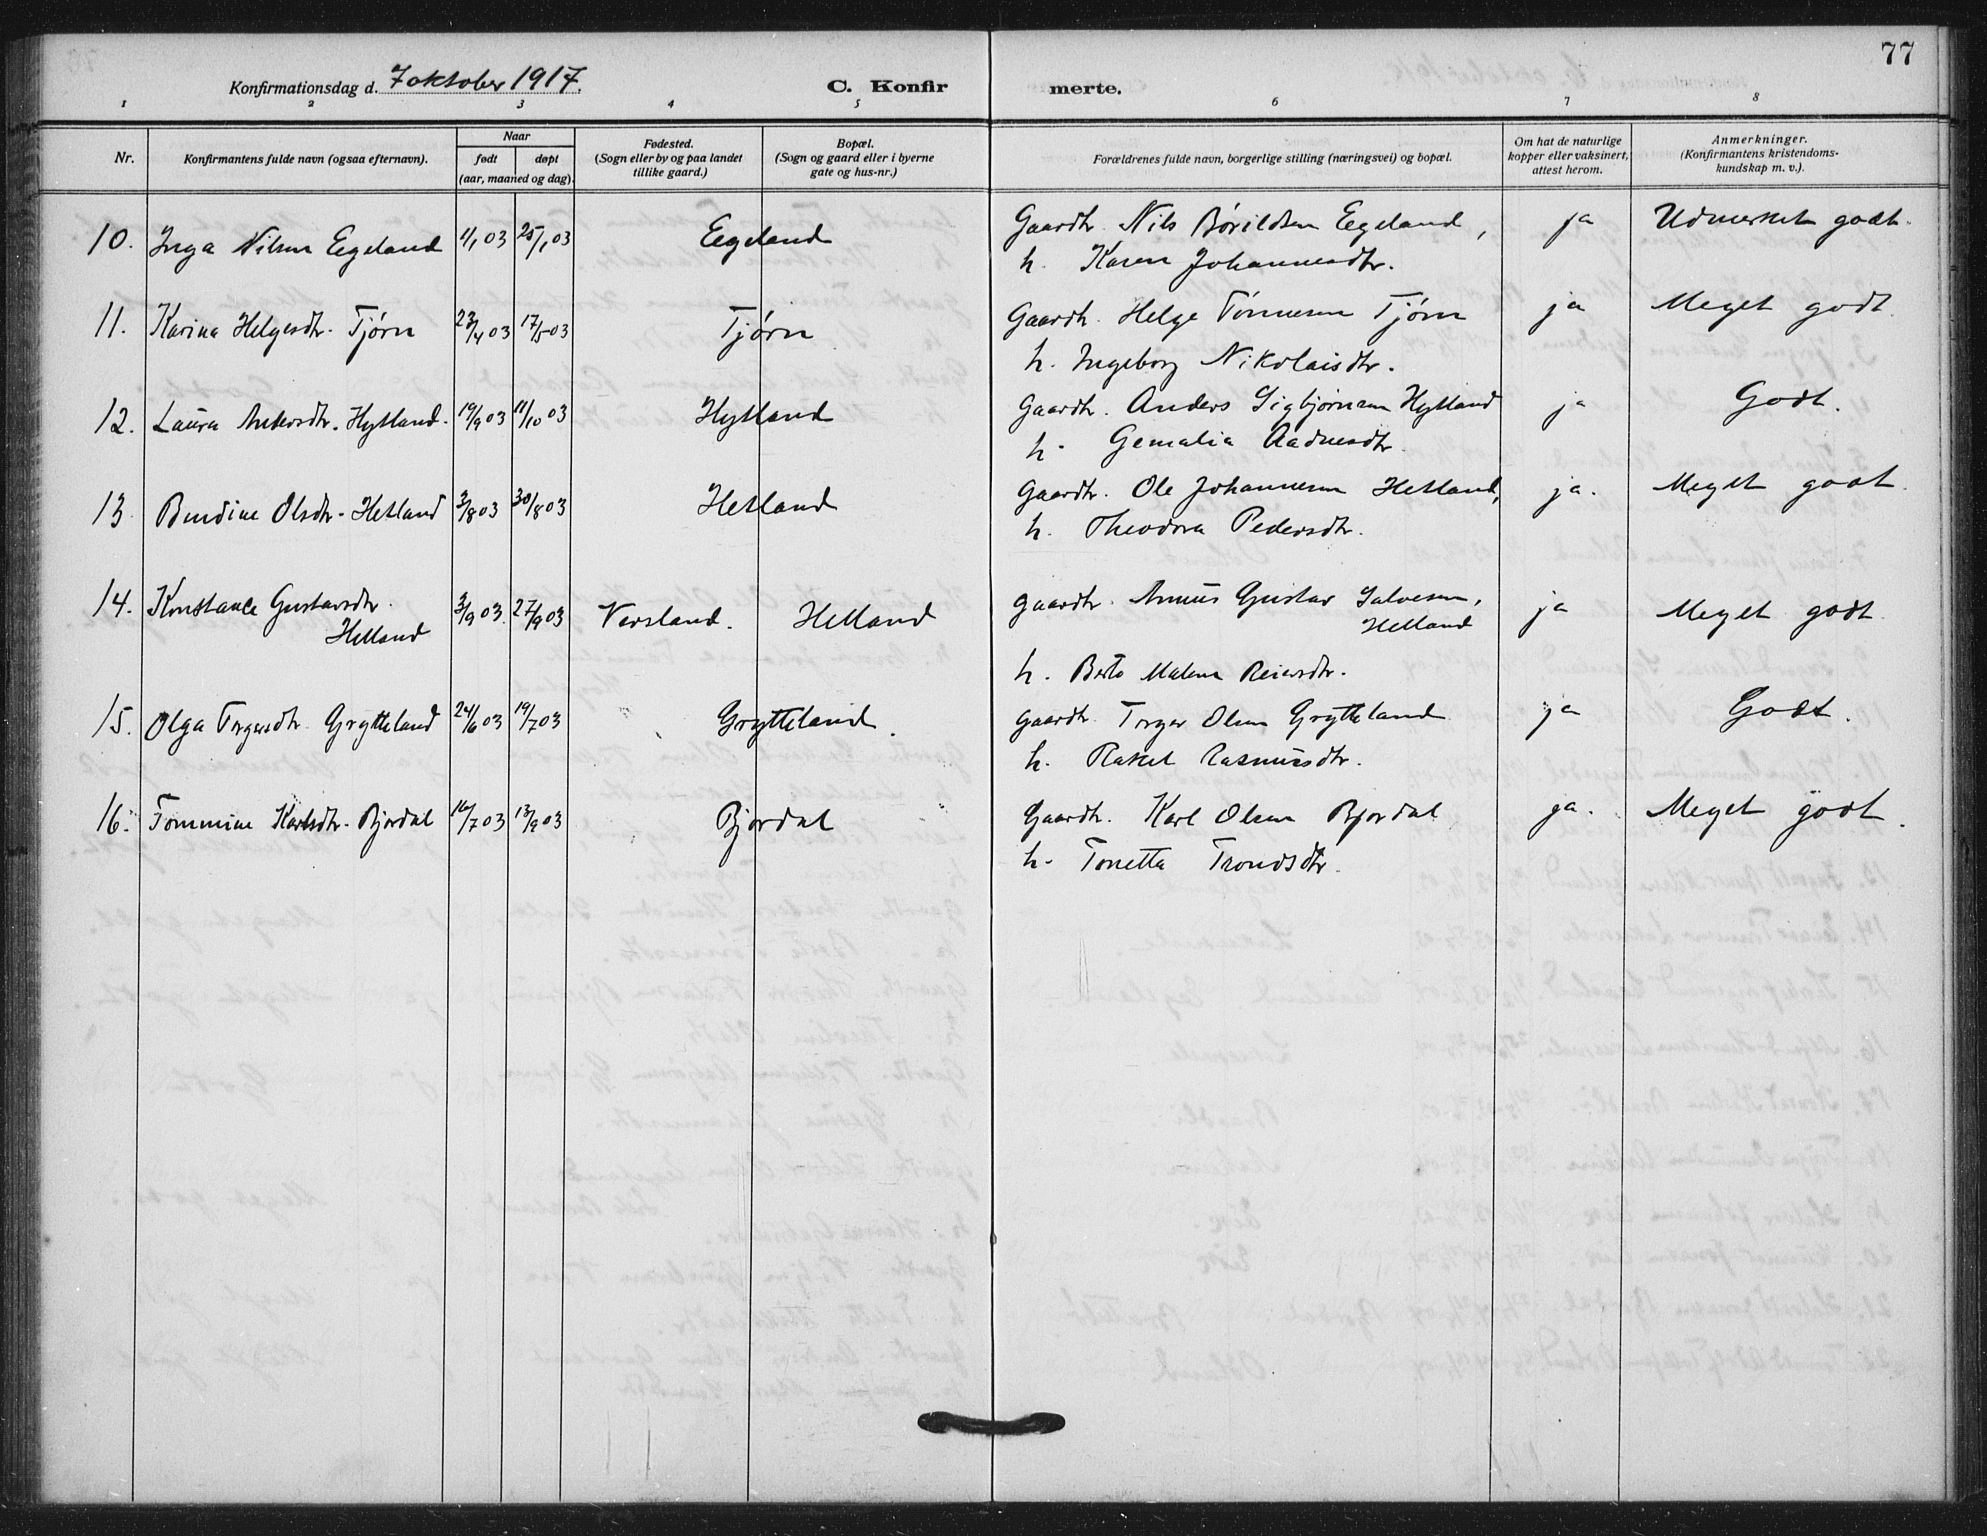 77
Konfirmationsdag d. 7 oktober 1917.
C. Konfir merte.
1 2 3 4 5 6 7 8
Nr.
Konfirmantens fulde navn (ogsaa efternavn).
Naar
født døpt
(aar, maaned og dag).
Fødested.
(Sogn eller by og paa landet
tillike gaard.)
Bopæl.
(Sogn og gaard eller i byerne
gate og hus-nr.)
Forældrenes fulde navn, borgerlige stilling (næringsvei) og bopæl.
Om hat de naturlige
kopper eller vaksinert,
attest herom.
Anmerkninger.
(Konfirmantens kristendoms-
kundskap m. v.).
10. Inga Nilsen Eegeland 11/1 03 25/1 03 Eegeland Gaardbr. Nils Børildsen Eegeland, ja Udmerket godt.
h. Karen Johannesdtr.
11. Karina Helgesdtr. Tjørn 23/4 03 17/5 03 Tjørn Gaardbr. Helge Tønnesen Tjørn ja Meget godt.
h. Ingeborg Nikolaisdtr.
12. Laura Andersdtr. Hytland. 19/9 03 11/10 03 Hytland Gaardbr. Anders Sigbjørnsen Hytland ja Godt.
h. Gemalia Aadnesdtr.
13 Bendine Olsdtr. Hetland 3/8 03 30/8 03 Hetland Gaardbr. Ole Johannesen Hetland, ja. Meget godt.
h. Theodora Pedersdtr.
14. Konstance Gustavsdtr. Helland 3/9 03. 27/9 03 Versland. Helland gaardbr. Gustav Salvesen, Helland ja Meget godt.
h. Malene Reiersdtr.
15. Olga Torgersdtr. Grytteland 24/6 03 19/7 03 Grytteland. gaardbr. Torger Olsen Grytteland ja Godt.
h. Rakel Rasmusdtr.
16. Tommine Karlsdtr. Bjordal 16/7 03 13/9 03 Bjordal Gaardbr. Karl Olsen Bjordal ja. Meget godt.
h. Tonetta Trondsdtr.